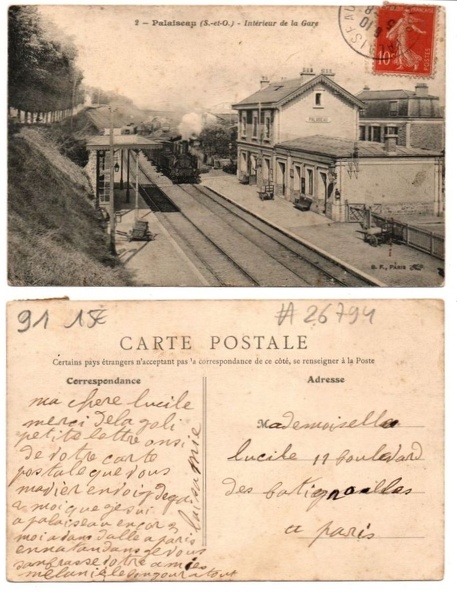 2 — Palaiseau (S.-et-O.) - Intérieur de la Gare
10
B. F., PARIS
91 15€
# 26794
CARTE POSTALE
Certains pays étrangers n'acceptant pas la correspondance de ce côté, se renseigner à la Poste
Correspondance
Adresse
ma chere lucile
merci de la joli
petite lettre ansi
de votre carte
postale que vous
mavier envoi
a moi que je sui
a palaiseau encor 2
moi a dans dalle a paris
en natandans je vous
danbrasse votre amies
melanie le bonjour a tout
Mademoiselle
lucile 12 boulevard
des batignolles
a paris